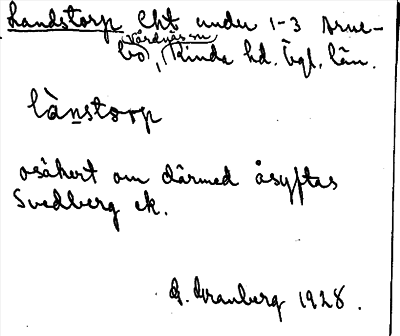 Landstorp lht under 1-3 Brue-
Vårdnäs sn
bo, Kinda hd. Ögl. län.
länstorp
osäkert om därmed åsyftas
Svedberg ek.
G. Granberg 1928.